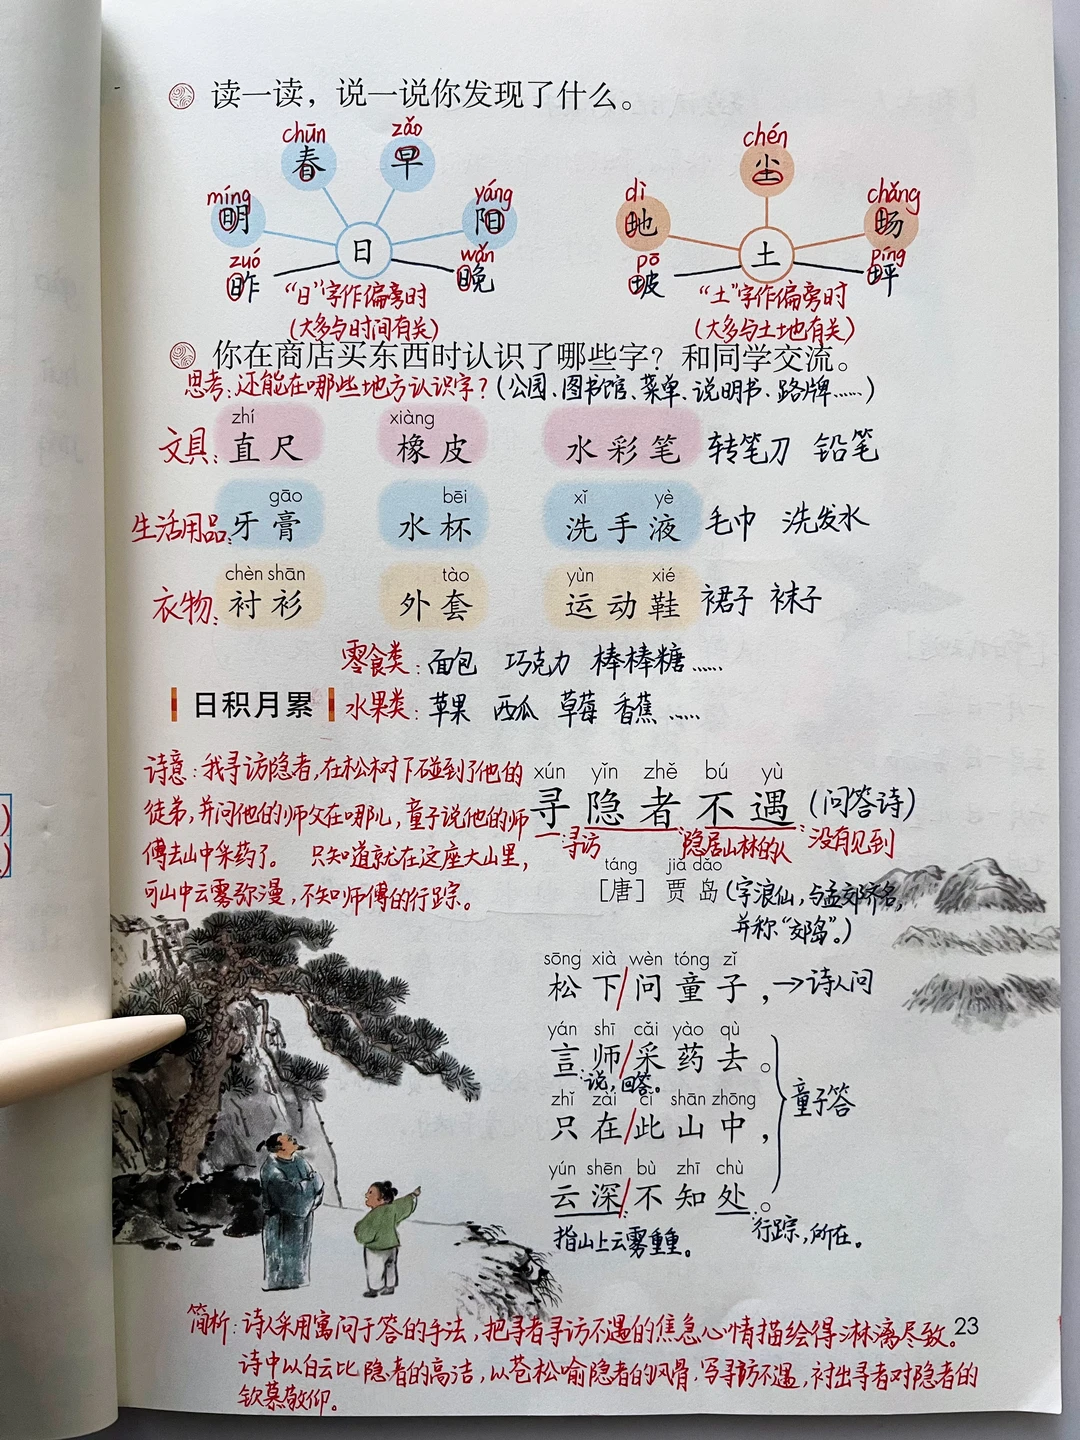 读一读，说一说你发现了什么。
chūn zǎo chén
春 早 尘
míng yáng dì chǎng
明 阳 地 场
日 土
zuó wǎn pō píng
昨 晚 坡 坪
“日”字作偏旁时 “土”字作偏旁时
(大多与时间有关) (大多与土地有关)
你在商店买东西时认识了哪些字？和同学交流。
思考:还能在哪些地方认识字？(公园、图书馆、菜单、说明书、路牌……)
zhí xiàng
文具: 直尺 橡皮 水彩笔 转笔刀 铅笔
gāo bēi xǐ yè
生活用品: 牙膏 水杯 洗手液 毛巾 洗发水
chèn shān tào yùn xié
衣物: 衬衫 外套 运动鞋 裙子 袜子
零食类: 面包 巧克力 棒棒糖……
日积月累 水果类: 苹果 西瓜 草莓 香蕉……
诗意:我寻访隐者,在松树下碰到了他的
徒弟,并问他的师父在哪儿,童子说他的师
傅去山中采药了。 只知道就在这座大山里,
可山中云雾弥漫,不知师傅的行踪。
xún yǐn zhě bú yù
寻隐者不遇 (问答诗)
:寻访 :隐居山林的人 :没有见到
táng jiǎ dǎo
［唐］贾岛 (字浪仙,与孟郊齐名,
并称“郊岛”。)
sōng xià wèn tóng zǐ
松下/问童子，→诗人问
yán shī cǎi yào qù
言师/采药去。
:说,回答。
zhǐ zài cǐ shān zhōng
只在/此山中， 童子答
yún shēn bù zhī chù
云深/不知处。
指山上云雾重重。 :行踪,所在。
简析:诗人采用寓问于答的手法,把寻者寻访不遇的焦急心情描绘得淋漓尽致。 23
诗中以白云比隐者的高洁,以苍松喻隐者的风骨,写寻访不遇,衬出寻者对隐者的
钦慕敬仰。